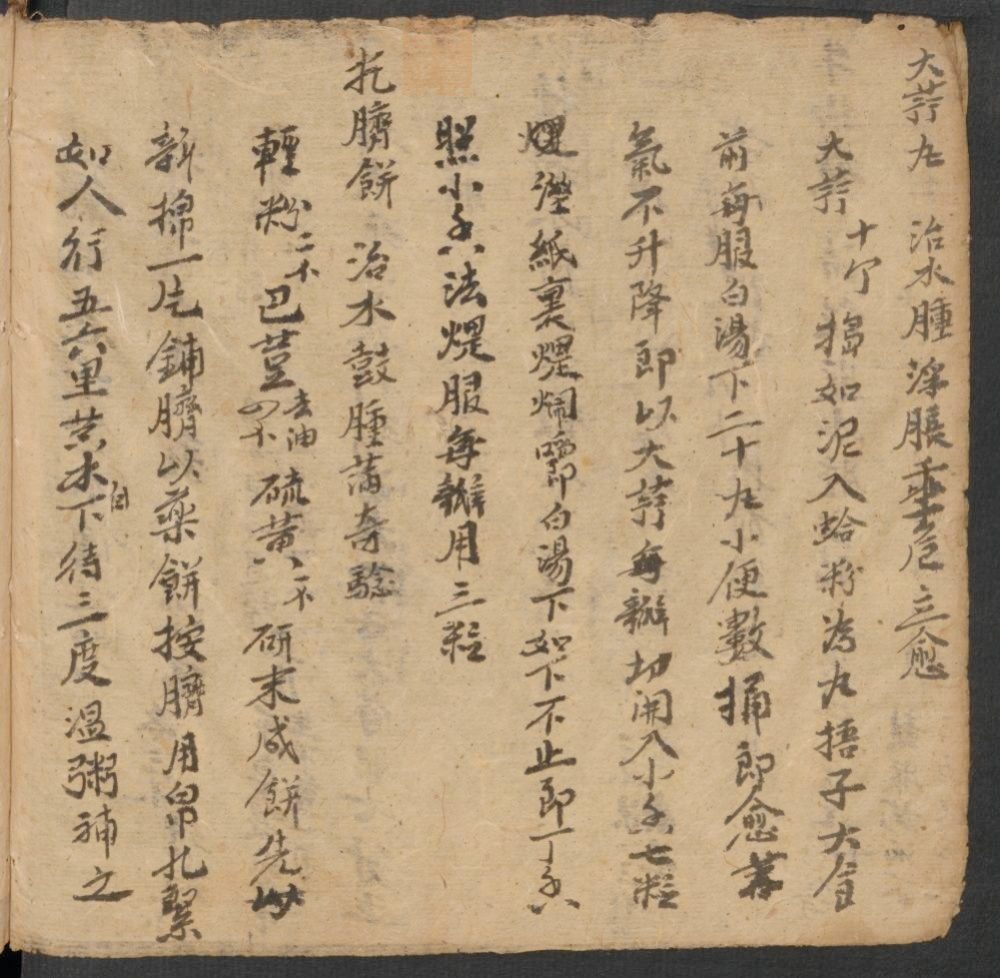 大蒜丸 治水腫浮脹垂危立愈
大蒜 十个 搗如泥入蛤粉為丸捂子大食
前每服白湯下二十九小便數桶即愈若
氣不升降即以大蒜每瓣切開入小
七粒
煨濕紙裹煨 白湯下如下不止即丁
照小 法煨服每瓣用三粒
扎臍餅 治水鼓腫滿奇驗
輕粉 二 巴荳 去油 四 硫黃 一 研末成餅先以
新棉一片鋪臍以藥餅按臍用帛扎緊
如人行五六里黃水自下待三度溫粥補之